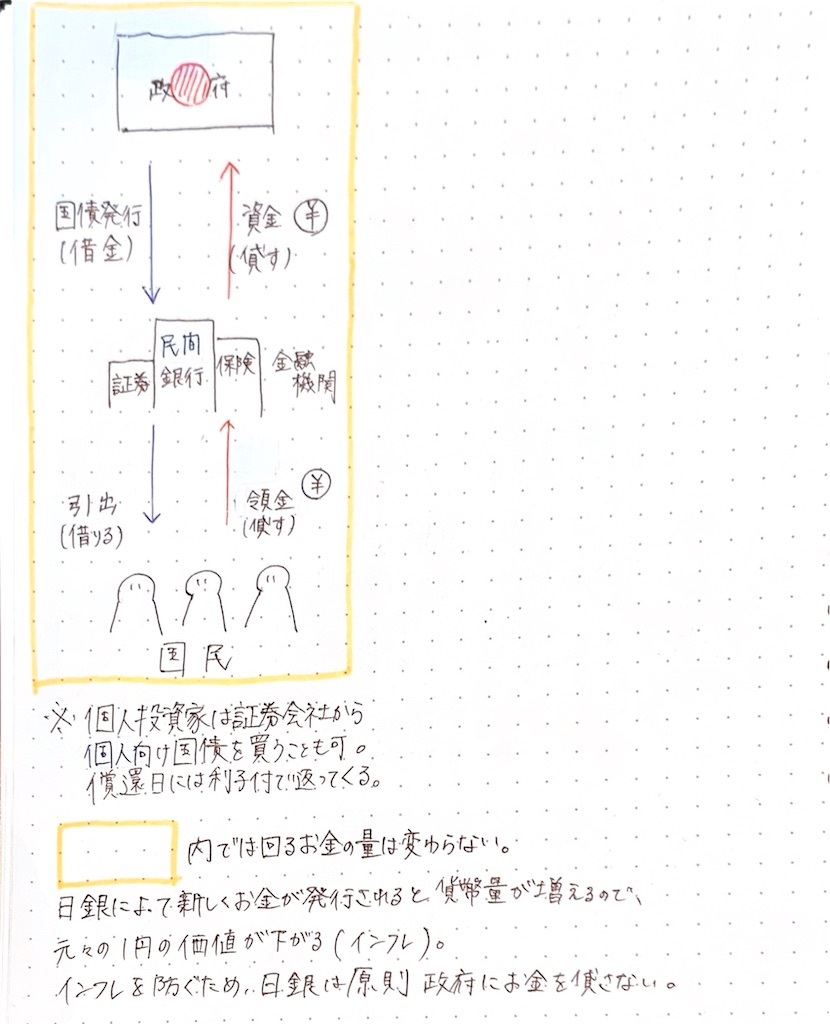 政府
国債発行
(借金)
資金 ¥
(貸す)
証券
民間
銀行
保険
金融
機関
引出
(借りる)
領金 ¥
(貸す)
国民
※ 個人投資家は証券会社から
個人向け国債を買うことも可。
償還日には利子付で返ってくる。
内では回るお金の量は変わらない。
日銀によって新しくお金が発行されると貨幣量が増えるので、
元々の1円の価値が下がる(インフレ)。
インフレを防ぐため、日銀は原則 政府にお金を貸さない。